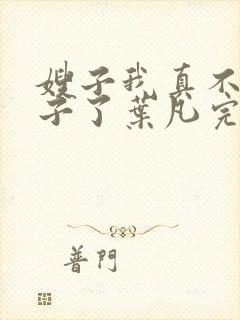 嫂子我真不
子了葉凡完
普門